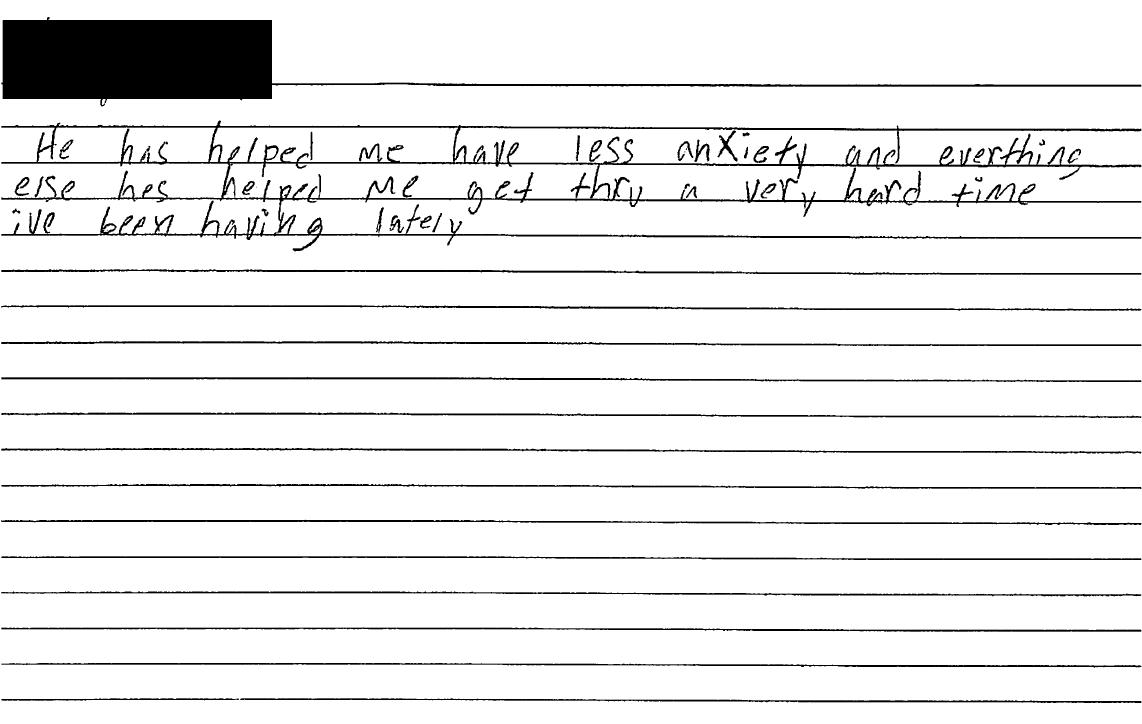 He has helped me have less anxiety and everthing
else hes helped me get thru a very hard time
ive been having lately